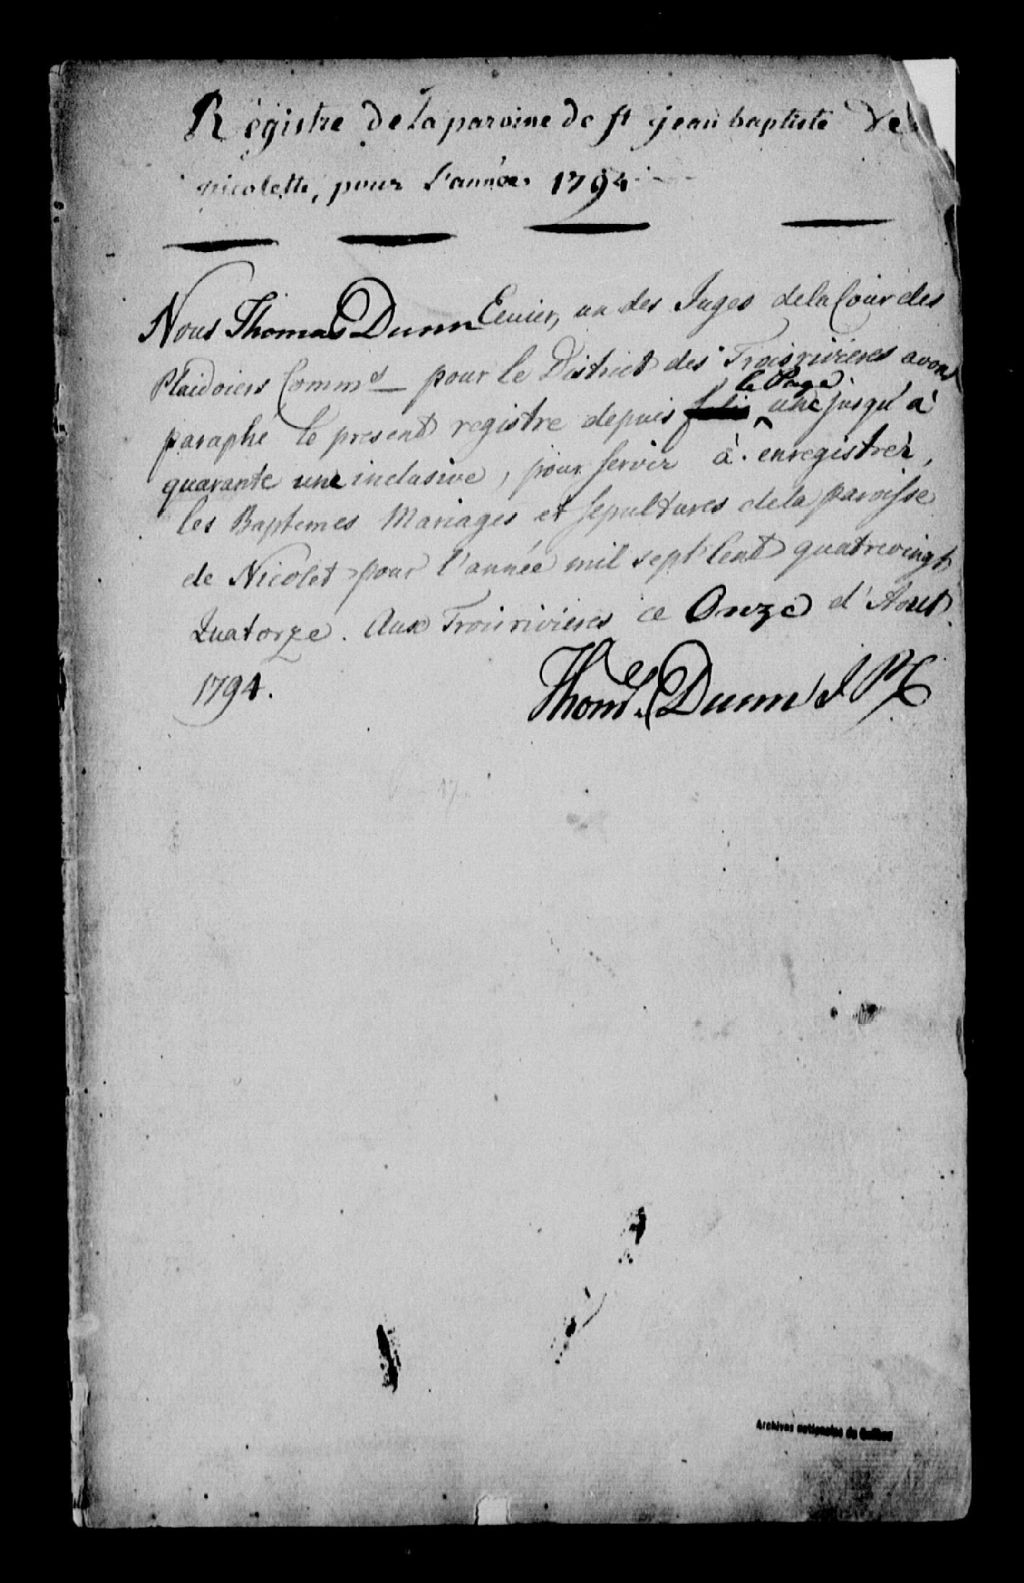 Régistre de la paroisse de st jean baptiste de
nicolette, pour l'année 1794
Nous Thomas Dunn Ecuier, un des Juges de la Cour des
Plaidoiers Comms pour le District des Troisrivieres avons
paraphé le present registre depuis le Page une jusqu'à
quarante une inclusive, pour servir à enregistrer,
les Baptemes Mariages et sepultures de la paroisse
de Nicolet pour l'année mil sept Cent quatrevingt
Quatorze. Aux Troisrivieres ce Onze d'Aout
1794.
Thoms. Dunn J P C
Archives nationales du Québec